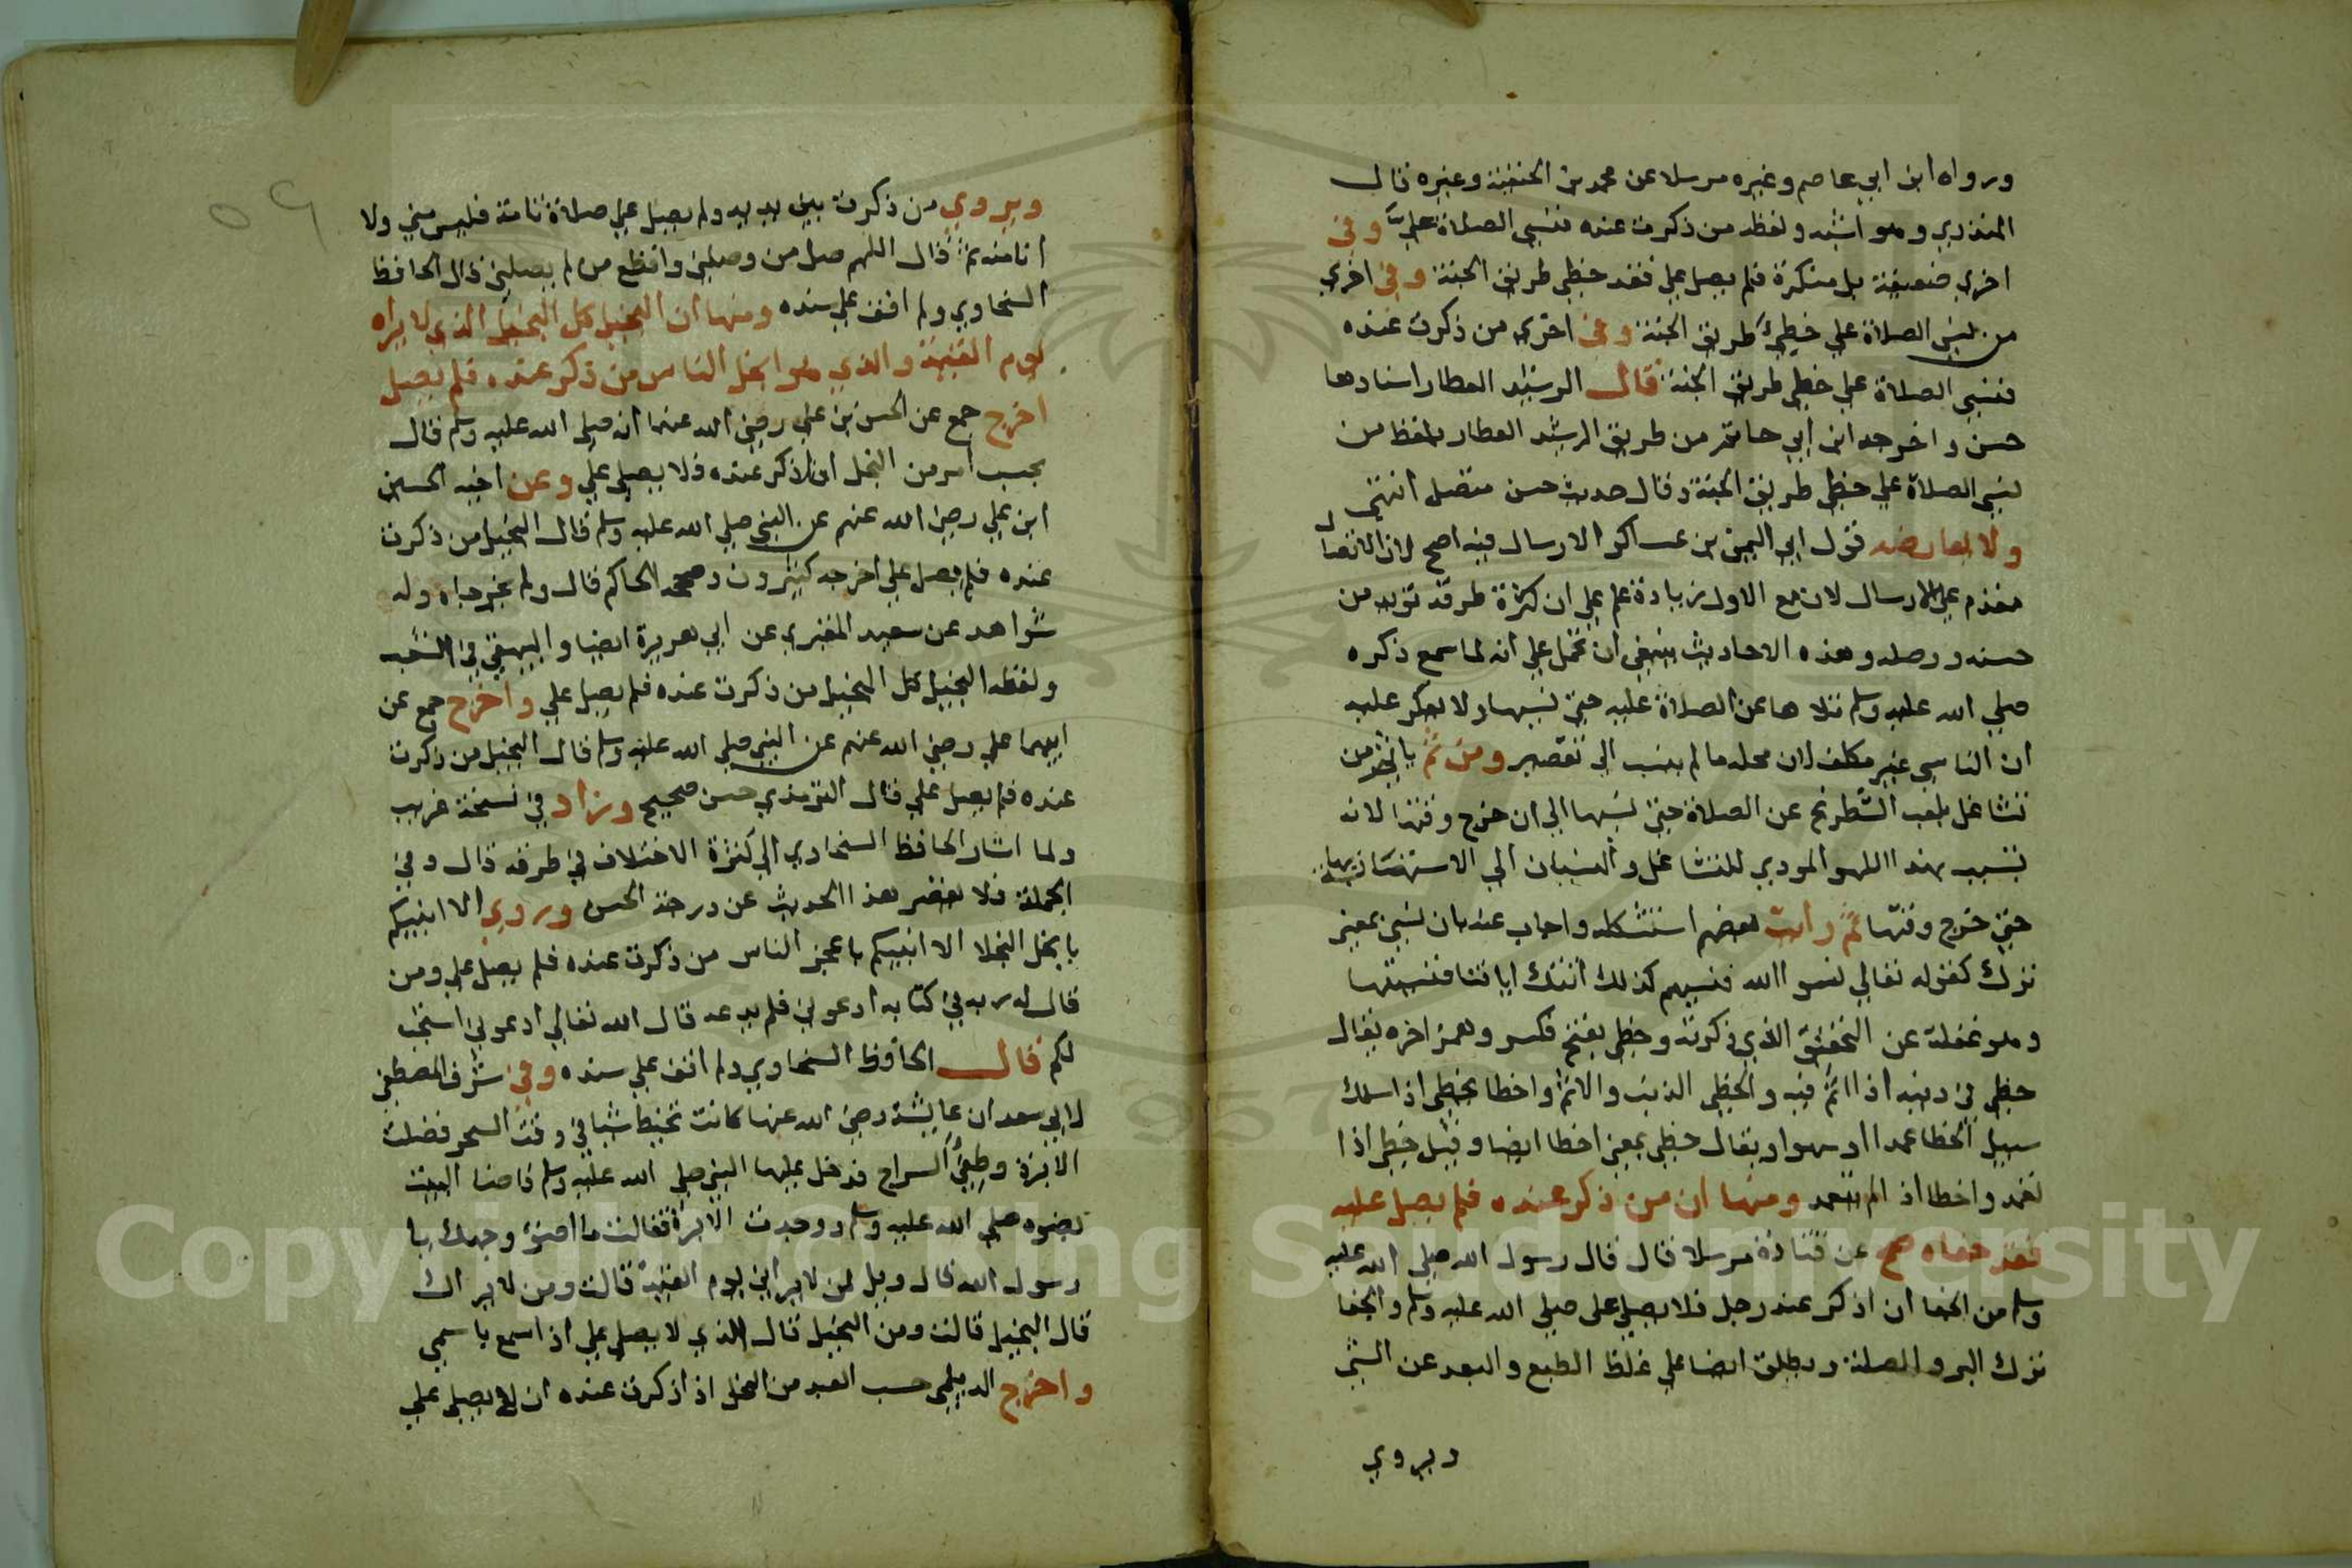 ورواه ابن ابي عاصم وغيره مرسلا عن محمد بن الحنفية وغيره قال
المنذري وهو اشبه ولفظه من ذكرت عنده فنسي الصلاة عليّ وفي
اخري ضعيفة بل منكرة فلم يصل علي فقد خطي طريق الجنة وفي اخري
من نسي الصلاة علي خطئ طريق الجنة وفي اخري من ذكرت عنده
فنسي الصلاة علي خطي طريق الجنة قال الرشيد العطار اسنادها
حسن واخرجه ابن ابي حاتم من طريق الرشيد العطار بلفظ من
نسي الصلاة علي خطي طريق الجنة وقال حديث حسن متصل انتهي
ولا يعارضه قول ابي اليمن بن عساكر الارسال فيه اصح لان الاتصال
مقدم علي الارسال لان مع الاول زيادة علم علي ان كثرة طرقه تويد من
حسنه ووصله وهذه الاحاديث ينبغي ان تحمل علي انه لما سمع ذكره
صلي الله عليه وسلم تلاها عن الصلاة عليه حتي نسيها ولا يعكر عليه
ان الناسي غير مكلف لان محله ما لم ينسب الي تقصير ومن ثم ياثم من
تشاغل بلعب الشطرنج عن الصلاة حتي نسيها الي ان خرج وقتها لانه
تسبب بهذا اللهو المودي للتشاغل والنسيان الي الاستهتار بها
حتي خرج وقتها ثم رايت بعضهم استشكله واجاب عنه بان نسي بمعني
ترك كقوله تعالي نسوا الله فنسيهم كذلك اتتك اياتنا فنسيتها
وهو غفلة عن التحقيق الذي ذكرته وخطي بفتح فكسر وهمز اخره يقال
خطي في دينه اذا اثم فيه والخطي الذنب والاثم واخطا يخطي اذا سلك
سبيل الخطا عمدا او سهوا ويقال خطي بمعني اخطا ايضا وقيل خطي اذا
تعمد واخطا اذا لم يتعمد ومنها ان من ذكر عنده فلم يصل عليه
فقد جفاه صح عن قتادة مرسلا قال قال رسول الله صلي الله عليه
وسلم من الجفا ان اذكر عند رجل فلا يصلي علي صلي الله عليه وسلم والجفا
ترك البر والصلة ويطلق ايضا علي غلظ الطبع والبعد عن الشي
ويروي
ويروي من ذكرت بين يديه ولم يصل علي صلاة تامة فليس مني ولا
انا منه ثم قال اللهم صل من وصلني واقطع من لم يصلني قال الحافظ
السخاوي ولم اقف علي سنده ومنها ان البخيل كل البخيل الذي لا يراه
يوم القيمة والذي هو ابخل الناس من ذكر عنده فلم يصل
اخرج جمع عن الحسن بن علي رضي الله عنهما انه صلي الله عليه وسلم قال
بحسب امر من البخل ان اذكر عنده فلا يصلي علي وعن اخيه الحسين
ابن علي رضي الله عنهم عن النبي صلي الله عليه وسلم قال البخيل من ذكرت
عنده فلم يصل علي اخرجه كثيرون وصححه الحاكم قال ولم يخرجاه وله
شواهد عن سعيد المقبري عن ابي هريرة ايضا والبيهقي في الشعب
ولفظه البخيل كل البخيل من ذكرت عنده فلم يصل علي واخرج جمع عن
ابيهما علي رضي الله عنهم عن النبي صلي الله عليه وسلم قال البخيل من ذكرت
عنده فلم يصل علي قال الترمذي حسن صحيح وزاد في نسخة غريب
ولما اشار الحافظ السخاوي الي كثرة الاختلاف في طرقه قال وفي
الجملة فلا يقصر هذا الحديث عن درجة الحسن وروي الا انبيكم
بابخل البخلا الا انبيكم باعجز الناس من ذكرت عنده فلم يصل علي ومن
قال له ربه في كتابه ادعوني فلم يدعه قال الله تعالي ادعوني استجب
لكم قال الحافظ السخاوي ولم اقف علي سنده وفي شرف المصطفي
لابي سعد ان عايشة رضي الله عنها كانت تخيط شيا في وقت السحر فضلت
الابرة وطفئ السراج فدخل عليها النبي صلي الله عليه وسلم فاضا البيت
بضوه صلي الله عليه وسلم ووجدت الابرة فقالت ما اضوئ وجهك يا
رسول الله قال ويل لمن لا يراني يوم القيمة قالت ومن لا يراك
قال البخيل قالت ومن البخيل قال الذي لا يصلي علي اذا سمع باسمي
واخرج الديلمي حسب العبد من البخل اذا ذكرت عنده ان لا يصلي علي